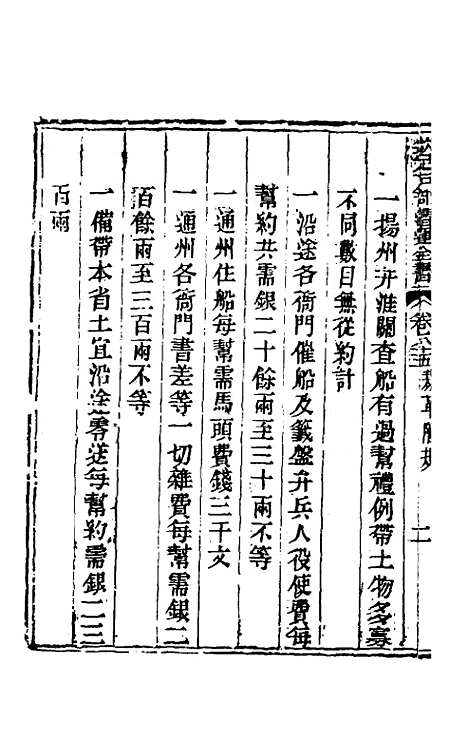 欽定戶部漕運全書 卷八十五 裁革陋規 二
一揚州弁淮關查船有過幫禮例帶土物多寡
不同數目無從約計
一沿途各衙門催船及籤盤弁兵人役使費每
幫約共需銀二十餘兩至三十兩不等
一通州住船每幫需馬頭費錢三千文
一通州各衙門書差等一切雜費每幫需銀二
百餘兩至三百兩不等
一備帶本省土宜沿途零送每幫約需銀二三
百兩